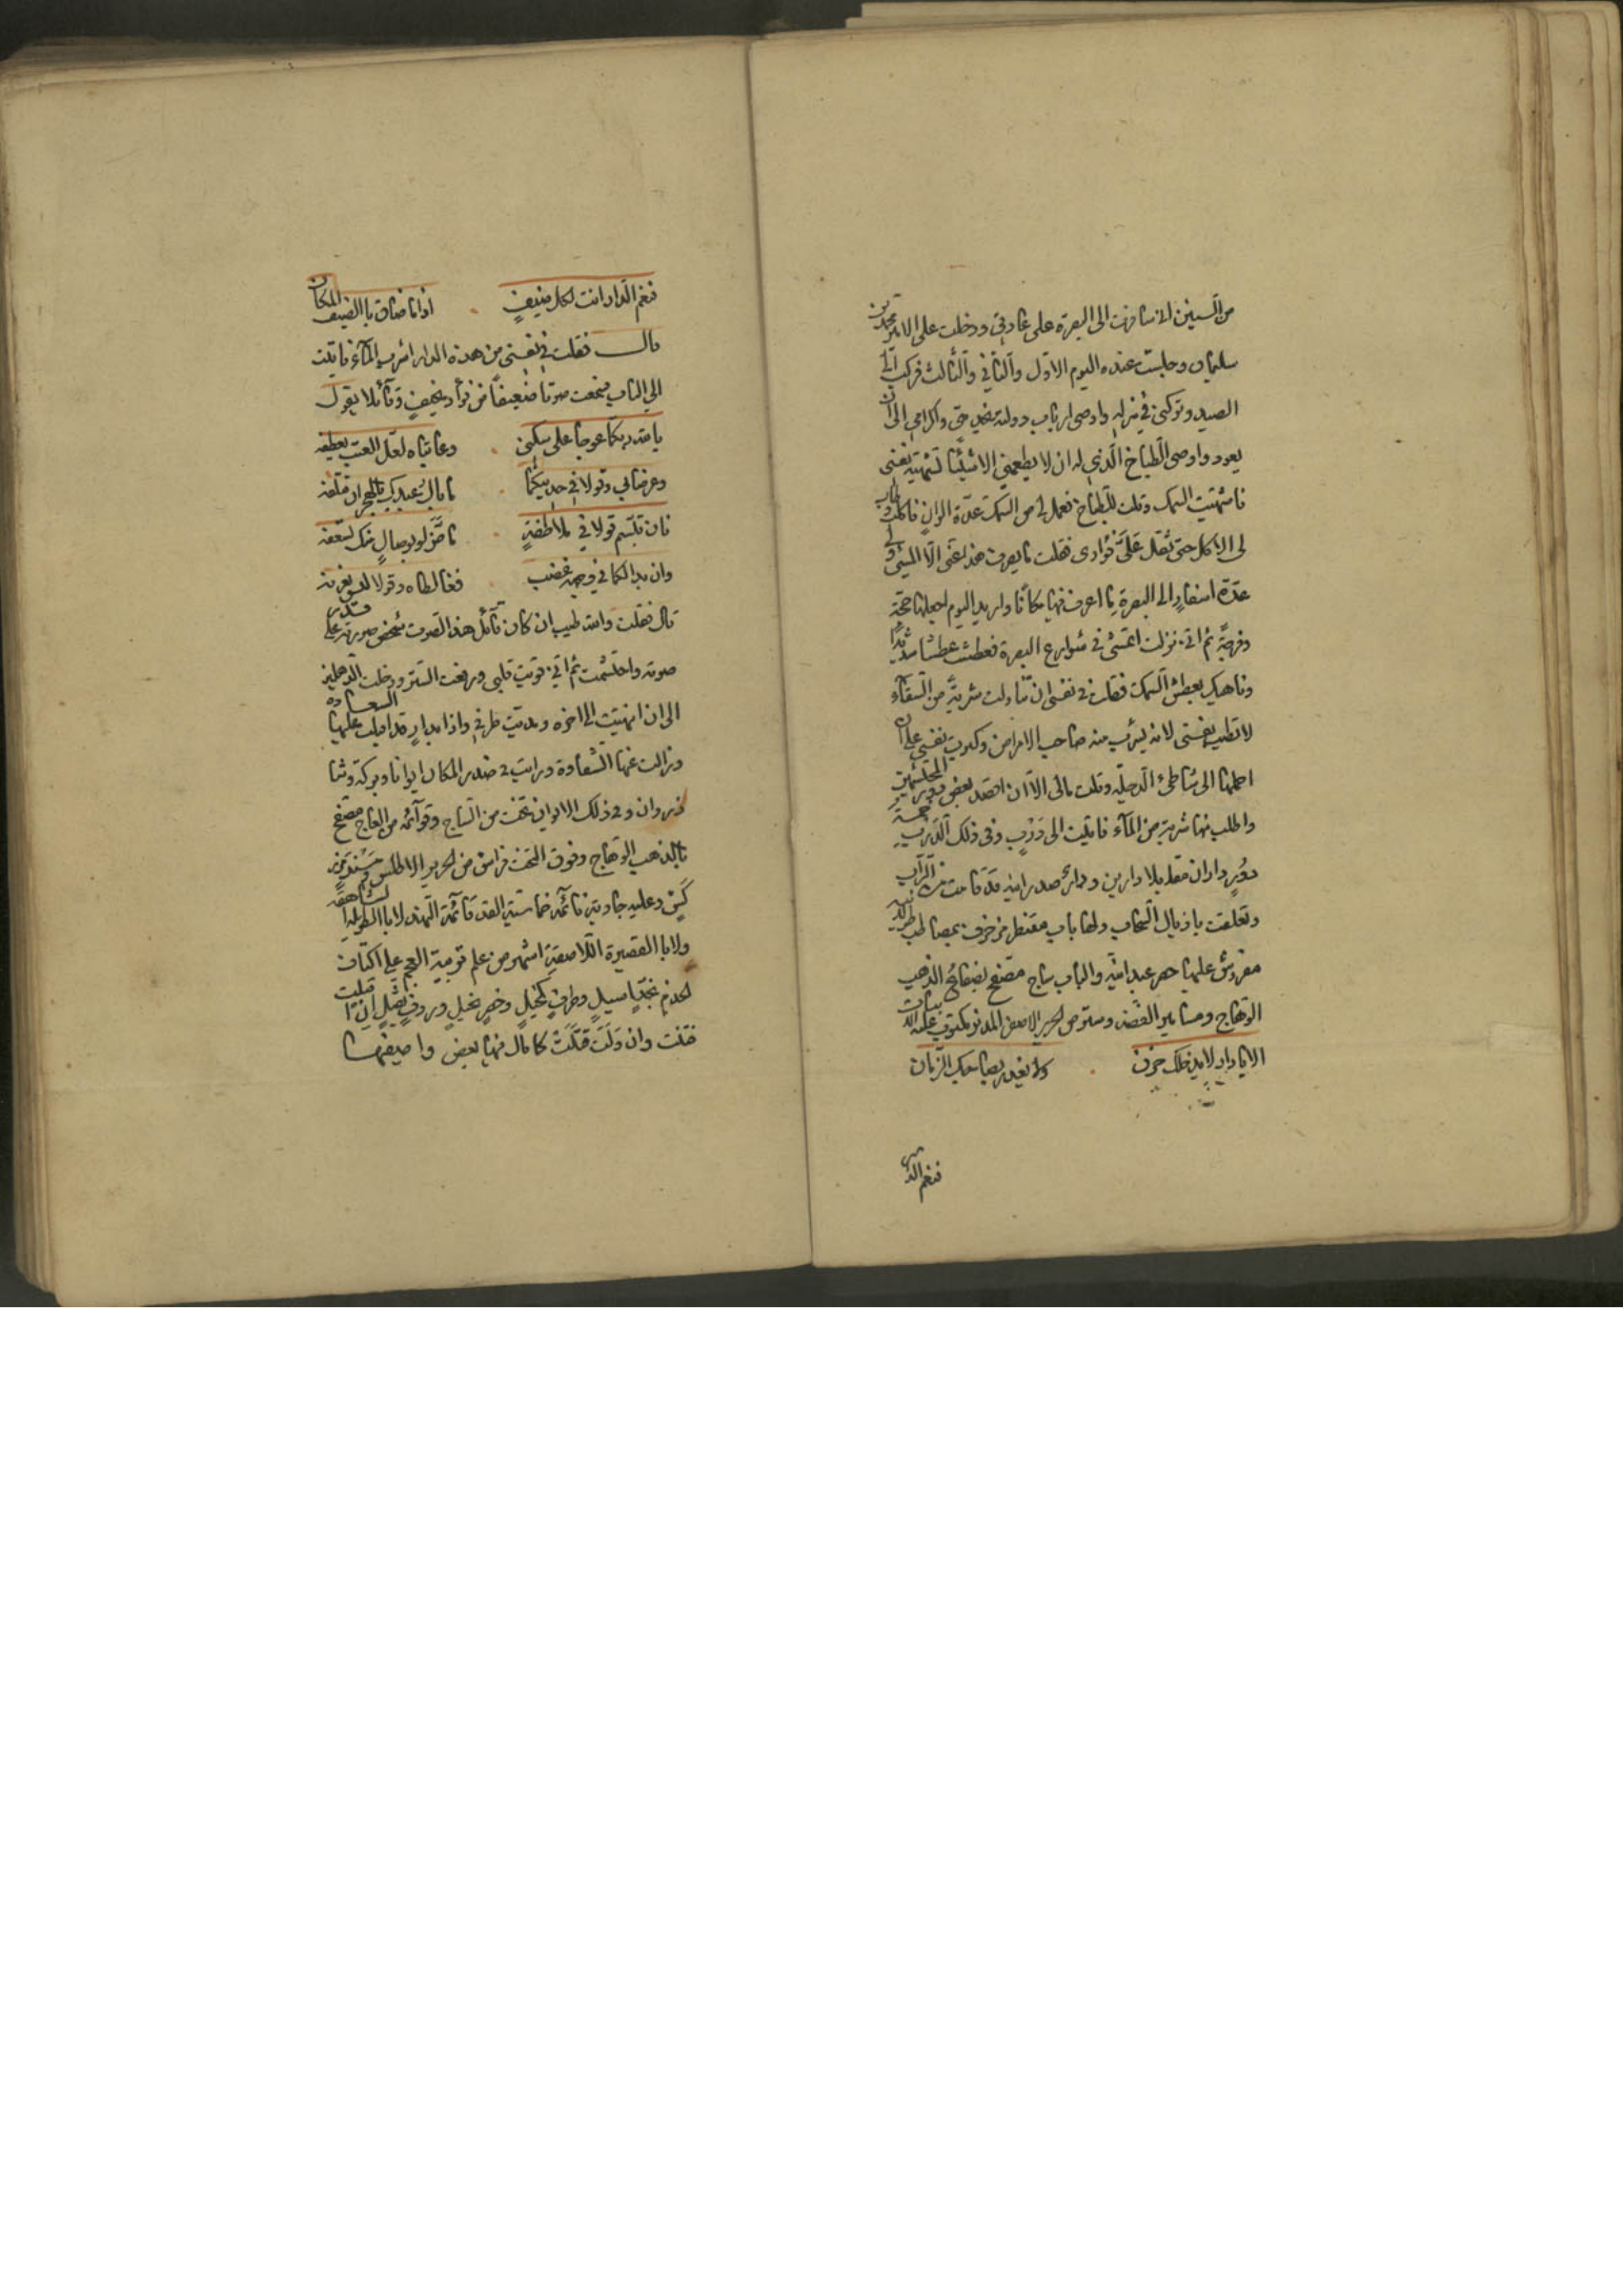 من السنين اني سافرت الى البصرة على عادتي ودخلت على الامير محمد بن
سليمان وجلست عنده اليوم الاول والثاني والثالث فركب الى
الصيد وتركني في منزله واوصى ارباب دولته بخدمتي واكرامي الى ان
يعود واوصى الطباخ الذي له ان لا يطعمني الا شيئا تشتهيه نفسي
فاشتهيت السمك وقلت للطباخ فعمل لي من السمك عدة الوان فاكلت وطاب
لي الاكل حتى ثقل على فؤادي فقلت ما يصرف هذا عني الا المشي ولي
عدة اسفار الى البصرة ما اعرف فيها مكانا واريد اليوم اجعلها حجة
وفرجة ثم اني نزلت اتمشى في شوارع البصرة فعطشت عطشا شديدا
وناهيك بعطش السمك فقلت في نفسي ان تناولت شربة من السقاء
لا تطيب نفسي لانه يشرب منه صاحب الامراض وكبرت نفسي على ان
احملها الى شاطئ الدجلة وقلت مالي الا ان اقصد بعض دور المحتشمين
واطلب منها شربة من الماء فاتيت الى درب وفي ذلك الدرب خمسة
دور داران مقابلا دارين ودار صدرانية قد قامت من التراب
وتعلقت باذيال السحاب ولها باب مقنطر مزخرف بمصاطب
مفروش عليها حصر عبدانية والباب ساج مصفح بصفائح الذهب
الوهاج ومسامير الفضة وستر من الحرير الاصفر المدنر مكتوب عليه
الا يا دار لا يدخلك حزن . ولا يغدر بصاحبك الزمان
فنعم الدار
فنعم الدار انت لكل ضيف . اذا ما ضاق بالضيف المكان
قال فقلت في نفسي من هذه الدار اشرب الماء فاتيت
الى الباب فسمعت صوتا ضعيفا من فؤاد نحيف وقائلا يقول
يالله ربكما عوجا على سكني . وعاتباه لعل العتب يعطفه
وعرضا بي وقولا في حديثكما . ما بال عبدك بالهجران تتلفه
فان تبسم قولا في ملاطفة . ما ضر لو بوصال منك تسعفه
وان بدا لكما في وجهه غضب . فغالطاه وقولا ليس نعرفه
قال فقلت والله طيب ان كان قائل هذا الصوت شخص صورته على قدر
صوته واحتشمت ثم اني قويت قلبي ورفعت الستر ودخلت الدهليز
الى ان انتهيت الى اخره ومديت طرفي واذا بدار قد اقبلت عليها السعادة
وزالت عنها الشقاوة ورايت في صدر المكان ايوانا وبركة وشا
ذروان وفي ذلك الايوان تخت من الساج وقوائمه من العاج مصفح
بالذهب الوهاج وفوق التخت فراش من الحرير الاطلس ومسند مزر
كش وعليه جارية نائمة خماسية القد قائمة النهد لا بالطويلة الشاهقة
ولا بالقصيرة اللاصقة اشهر من علم تربية العجم على اكتاف
الخدم بخد اسيل وطرف كحيل وخصر نحيل وردف ثقيل ان اقبلت
فتنت وان ولت قتلت كما قال فيها بعض واصفيها